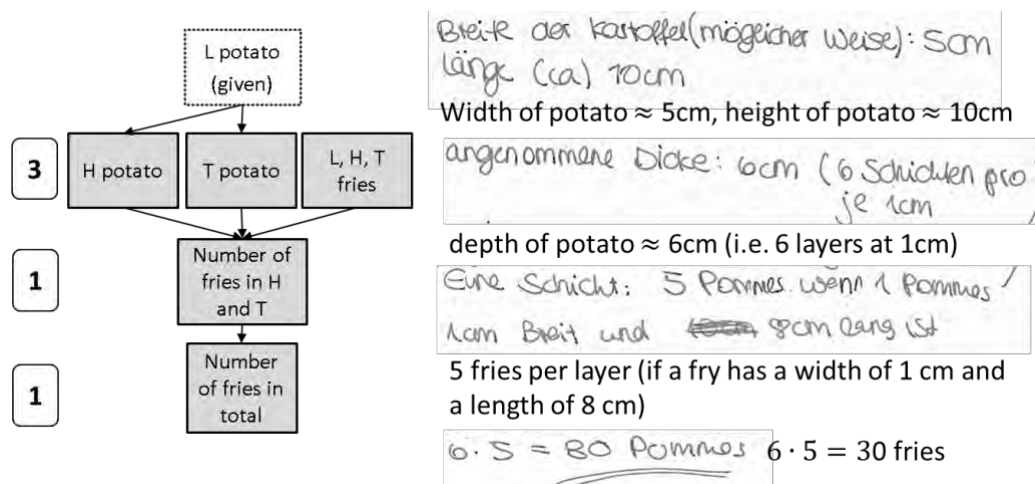 L potato
(given)
3
H potato
T potato
L, H, T
fries
1
Number of
fries in H
and T
1
Number
of fries in
total
Breite der Kartoffel (möglicher Weise): 5cm
Länge (ca) 10cm
Width of potato ≈ 5cm, height of potato ≈ 10cm
angenommene Dicke: 6cm (6 Schichten pro
je 1cm
depth of potato ≈ 6cm (i.e. 6 layers at 1cm)
Eine Schicht: 5 Pommes. wenn 1 Pommes
1cm Breit und 8cm lang ist
5 fries per layer (if a fry has a width of 1 cm and
a length of 8 cm)
6 · 5 = 30 Pommes
6 · 5 = 30 fries